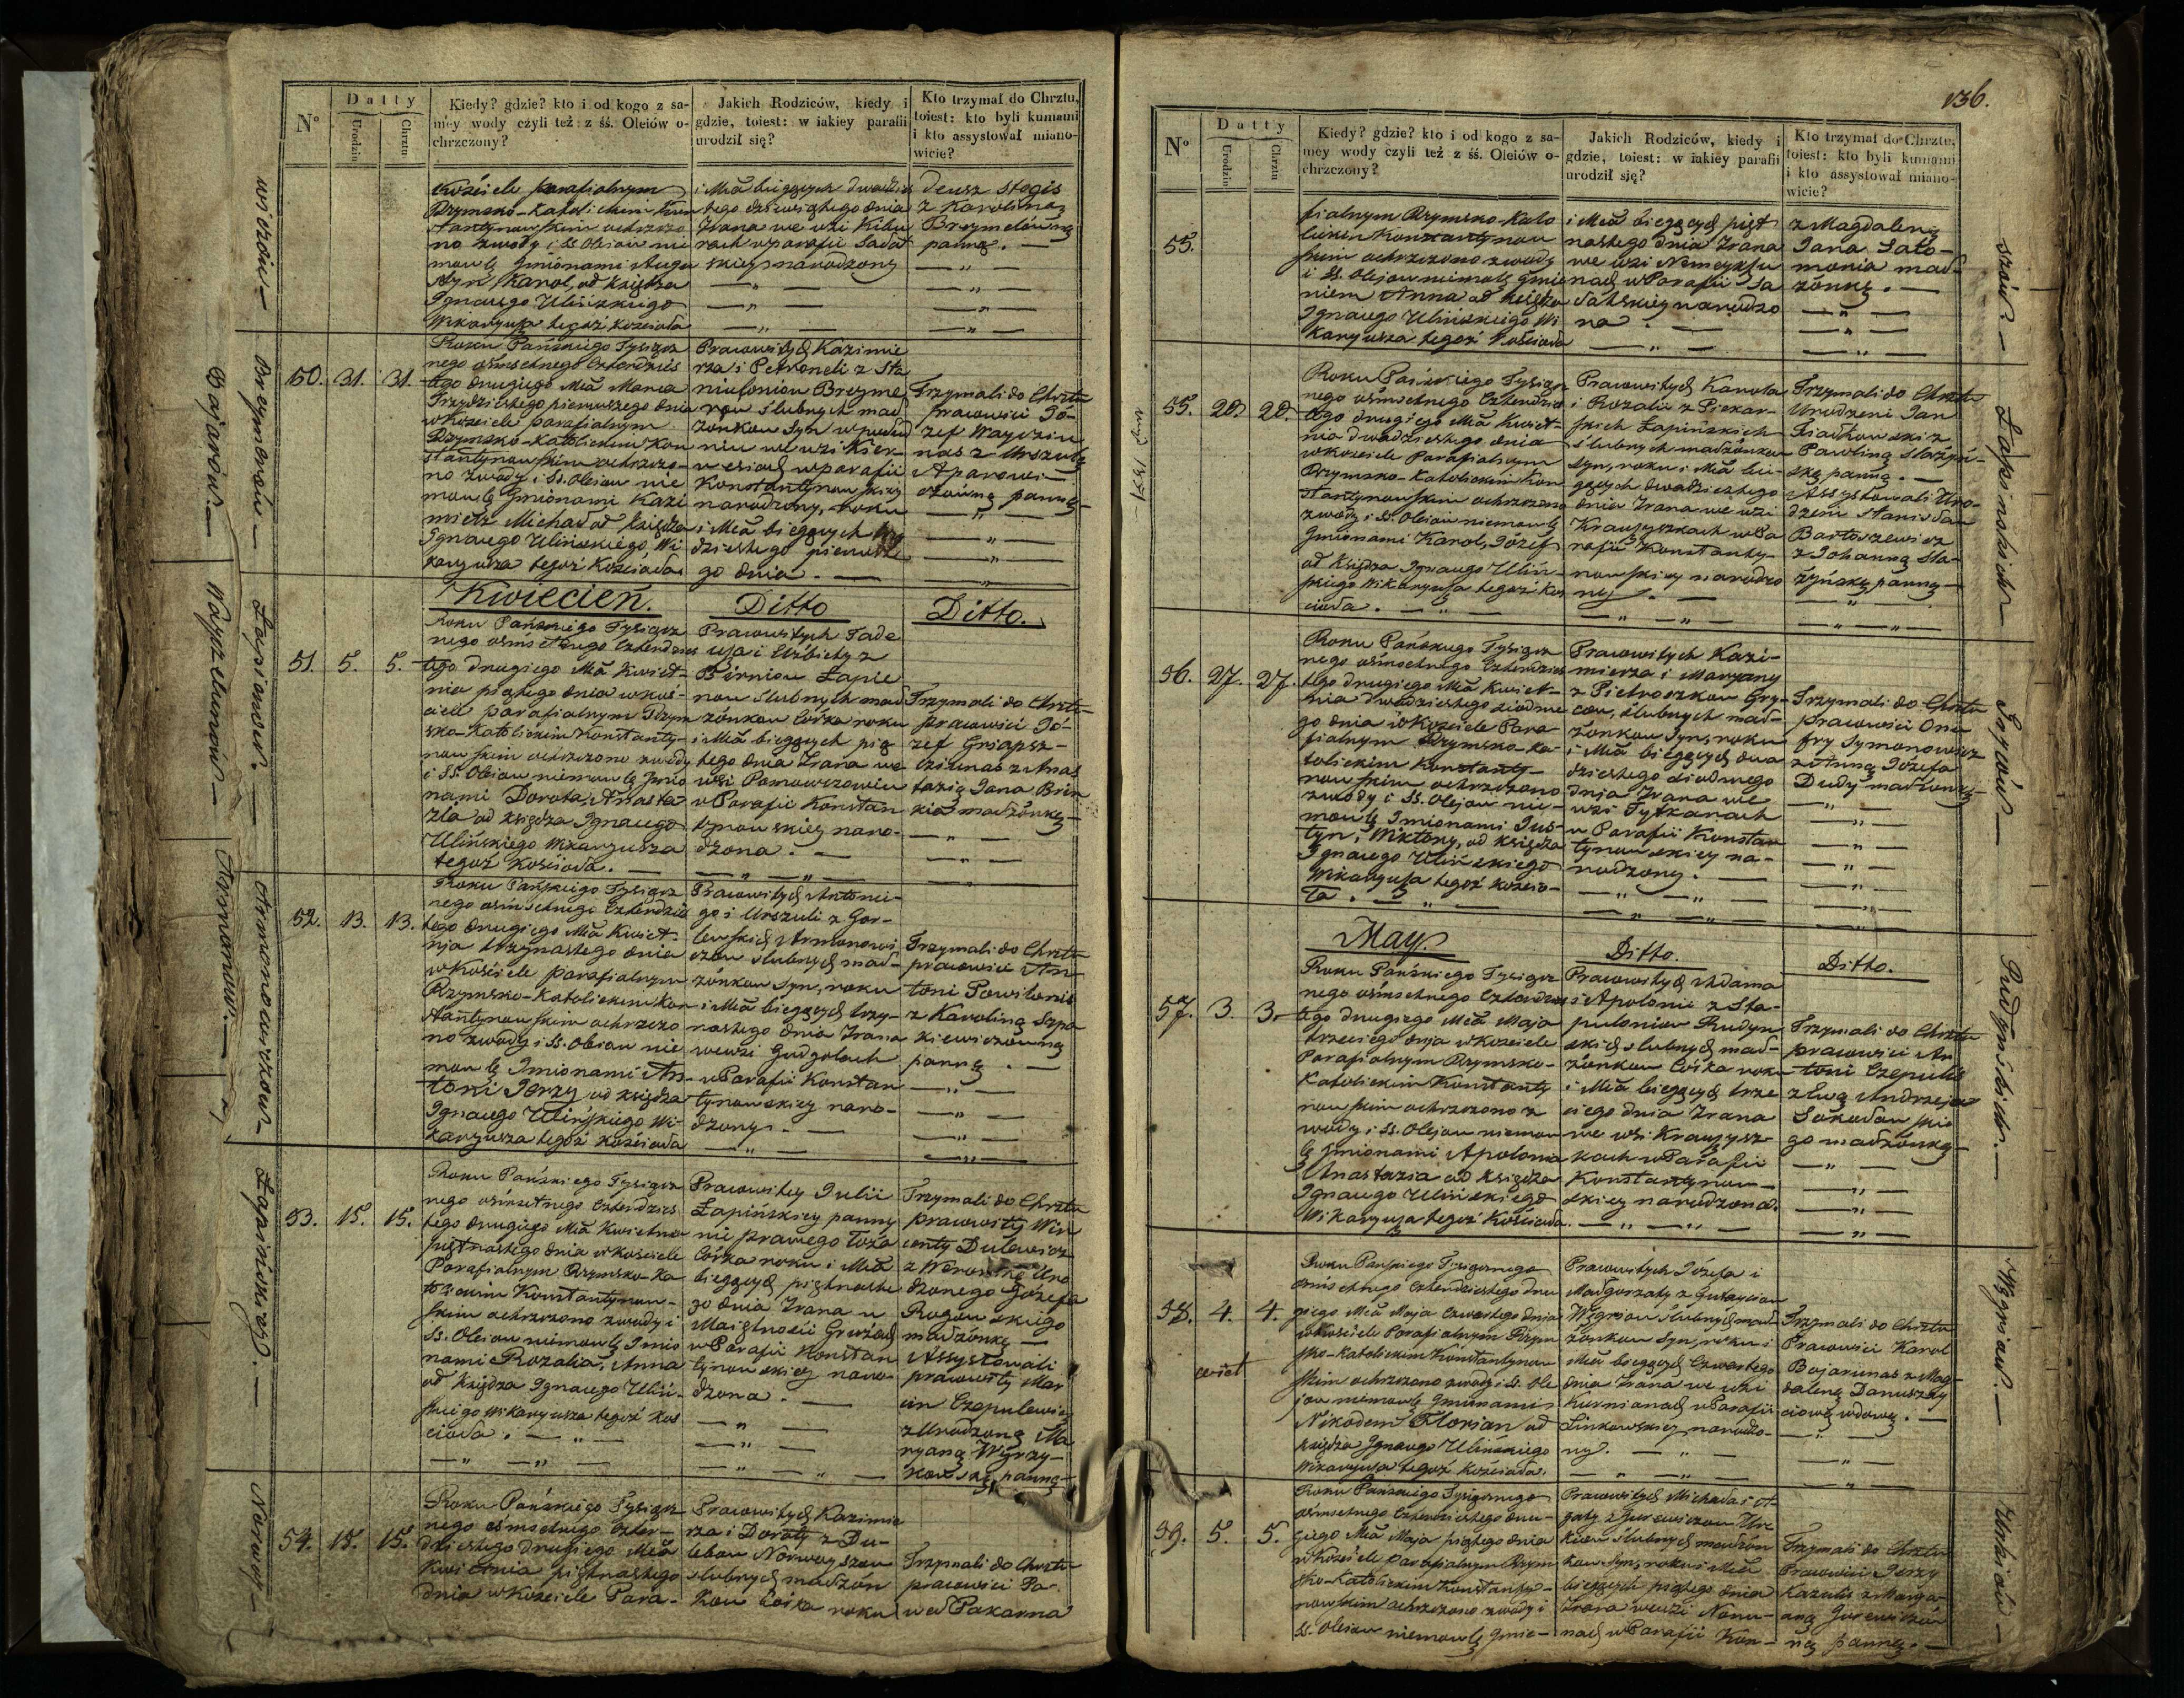 N°
Datty
Urodziu
Chrztu
Kiedy? gdzie? kto i od kogo z sa-
mey wody czyli też z śś. Oleiów o-
chrzczony?
Jakich Rodziców, kiedy i
gdzie, toiest: w iakiey parafii
urodził się?
Kto trzymał do Chrztu,
toiest: kto byli kumami
i kto assystował miano-
wicie?
Kościele parafialnym
Rzymsko-Katolickim Kon
stantynowskim ochrzczo
no zwody i SS. Oleiow nie
mowlę Jmionami Augu
styn Karol, od Księdza
Ignacego Ulińskiego
Wikaryusza tegoż Kościoła
i Mca bieżących dwudzies
tego dziewiątego dnia
Zrana we wsi
w parafii Sadat
skiey narodzony
deusz Stogis
z Karoliną
Breymelówną
panną. —
50. 31. 31.
Roku Pańskiego Tysiącz
nego ośmsetnego Czterdzies
tego drugiego Mca Marca
Trzydziestego pierwszego dnia
w Kościele parafialnym
Rzymsko-Katolickim Kon
stantynowskim ochrzczo-
no zwody i SS. Oleiow nie
mowlę Jmionami Kazi
mierz Michał od Księdza
Ignacego Ulińskiego, Wi
karyusza tegoż Kościoła
Prawowitych Kazimie
rza i Petroneli z Sta
niuloniow Breyme
row ślubnych mał
żonkow Syn
we wsi Kier-
w parafii
Konstantynowskiey
narodzony, roku
i Mca bieżących trzy
dziestego pierwsze
go dnia. —
Trzymali do Chrztu
prawowici Jó-
zef Waysziu
nas z Urszulą
Aparowi-
czowną panną
Kwiecień. Ditto Ditto.
51. 5. 5.
Roku Pańskiego Tysiącz
nego ośmsetnego Czterdzies
tego drugiego Mca Kwiet-
nia piątego dnia w Koś-
ciele parafialnym Rzym
sko-Katolickim Konstanty-
nowskim ochrzczono zwody
i SS. Oleiow niemowlę Jmio
nami Dorota, Anasta
zia od Księdza Ignacego
Ulińskiego Wikaryusza
tegoż Kościoła. —
Prawowitych Tade
usza i Elżbiety z
Birniow Łapie
now ślubnych mał
żonkow Córka roku
i Mca bieżących pią
tego dnia Zrana we
wsi Ponowczowiu
w Parafii Konstan
tynowskiey naro-
dzona. —
Trzymali do Chrztu
prawowici Jó-
zef Gniapsz-
czunas z Anas
tazią Jana Brin
kia małżonką
52. 13. 13.
Roku Pańskiego Tysiącz
nego ośmsetnego Czterdzies
tego drugiego Mca Kwiet-
nia trzynastego dnia
w Kościele parafialnym
Rzymsko-Katolickim Kon
stantynowskim ochrzczo
no zwody i SS. Oleiow nie
mowlę Imionami An-
toni Jerzy od Księdza
Ignacego Ulińskiego Wi-
karyusza tegoż Kościoła
Prawowitych Antonie-
go i Urszuli z Gor-
lewskich Armonowi
czow ślubnych mał-
żonkow Syn, roku
i Mca bieżących trzy-
nastego dnia Zrana
we wsi Gudgołach
w Parafii Konstan
tynowskiey naro-
dzony. —
Trzymali do Chrztu
prawowici An
toni Powilonis
z Karoliną Szpa
kiewiczówną
panną. —
53. 15. 15.
Roku Pańskiego Tysiącz
nego ośmsetnego Czterdzies
tego drugiego Mca Kwietnia
piętnastego dnia w Kościele
Parafialnym Rzymsko-Ka
tolickim Konstantynow-
skim ochrzczono zwody i
SS. Oleiow niemowlę Jmio
nami Rozalia, Anna
od Księdza Ignacego Uliń-
skiego Wikaryusza tegoż Koś
cioła. —
Prawowitey Julii
Łapińskiey panny
nie prawego łoża
Córka roku i Mca
bieżących piętnaste
go dnia Zrana w
Maiętności Grużach
w Parafii Konstan
tynowskiey naro-
dzona. —
Trzymali do Chrztu
prawowity Win
centy Dulewicz
z Weroniką Uro
dzonego Józefa
Rogowskiego
małżonką
Assystowali
prawowity Mar
cin Czepulewicz
z Urodzoną Ma
ryaną Węcz-
kowską panną
54. 15. 15.
Roku Pańskiego Tysiącz
nego ośmsetnego Czter-
dziestego drugiego Mca
Kwietnia piętnastego
dnia w Kościele Para-
Prawowitych Kazimie
rza i Doroty z Du-
lebow Norwoyszow
ślubnych małżon
kow Córka roku
Trzymali do Chrztu
prawowici Pa-
weł Pakarna
Breymerów —
Bajarów. —
Łapianow. —
Wayszlunów —
Armonowiczow —
Łapińskiego. —
Norwoy-
136.
N°
Datty
Urodziu
Chrztu
Kiedy? gdzie? kto i od kogo z sa-
mey wody czyli też z śś. Oleiów o-
chrzczony?
Jakich Rodziców, kiedy i
gdzie, toiest: w iakiey parafii
urodził się?
Kto trzymał do Chrztu,
toiest: kto byli kumami
i kto assystował miano-
wicie?
55.
fialnym Rzymsko-Kato
lickim Konstantynow
skim ochrzczono zwody
i SS. Olejow niemowlę Jmie
niem Anna od Księdza
Ignacego Ulińskiego Wi
karyusza tegoż Kościoła
i Mca bieżących pięt
nastego dnia Zrana
we wsi Nemeyksz
nach w Parafii Sa
datskiey narodzo
na. —
z Magdaleną
Jana Sało-
monia mał-
żonką. —
55. 20. 20.
Roku Pańskiego Tysiącz
nego ośmsetnego Czterdzies
tego drugiego Mca Kwiet-
nia dwudziestego dnia
w Kościele Parafialnym
Rzymsko-Katolickim Kon
stantynowskim ochrzczono
zwody i SS. Oleiow niemowlę
Jmionami Karol, Józef
od Księdza Ignacego Uliń-
skiego Wikaryusza tegoż Koś
cioła. —
Prawowitych Karola
i Rozalii z Piekar-
skich Łapińskich
ślubnych małżonkow
Syn, roku i Mca bie-
żących dwudziestego
dnia Zrana we wsi
Kraujyszkach w Pa
rafii Konstanty-
nowskiey narodzo
ny. —
Trzymali do Chrztu
Urodzeni Jan
Fiałkowski z
Pawliną Stażyń-
ską panną. —
Assystowali Uro-
dzeni Stanisław
Bartoszewicz
z Johanną Sta-
żyńską panną —
56. 27. 27.
Roku Pańskiego Tysiącz
nego ośmsetnego Czterdzies
tego drugiego Mca Kwiet-
nia dwudziestego siodme
go dnia w Kościele Para
fialnym Rzymsko-Ka-
tolickim Konstanty-
nowskim ochrzczono
zwody i SS. Olejow nie-
mowlę Imionami Jus-
tyn, Wiktory, od Księdza
Ignacego Ulińskiego
Wikaryusza tegoż Kościo-
ła. —
Prawowitych Kazi-
mierza i Maryany
z Pietroszkow Gry-
cow, ślubnych mał-
żonkow Syn, roku
i Mca bieżących dwu
dziestego siodmego
dnia Zrana we
wsi Tytkanach
w Parafii Konstan
tynowskiey na-
rodzony. —
Trzymali do Chrztu
prawowici Onu
fry Symonowicz
z Anną Józefa
Dudy małżonką
May. Ditto. Ditto.
57. 3. 3.
Roku Pańskiego Tysiącz
nego ośmsetnego Czterdzies
tego drugiego Mca Maja
trzeciego dnia w Kościele
Parafialnym Rzymsko-
Katolickim Konstanty
nowskim ochrzczono z
wody i SS. Olejow niemow
lę Jmionami Apolonia
Anastazia od Księdza
Ignacego Ulińskiego
Wikaryusza tegoż Kościoła.
Prawowitych Adama
i Apolonii z Sta-
puloniow Rudyn
skich ślubnych mał-
żonkow Córka roku
i Mca bieżących trze
ciego dnia Zrana
we wsi Kraujysz-
kach w Parafii
Konstantynow-
skiey narodzona.
Trzymali do Chrztu
prawowici An
toni Czepulis
z Ewą Andrzeja
Sakodowskie
go małżonką
58. 4. 4.
Roku Pańskiego Tysiącznego
ośmsetnego Czterdziestego dru
giego Mca Maja Czwartego dnia
w Kościele Parafialnym Rzym
sko-Katolickim Konstantynow
skim ochrzczono zwody i SS. Ole
jow niemowlę Jmionami
Nikodem Florian od
Księdza Ignacego Ulińskiego
Wikaryusza tegoż Kościoła.
Prawowitych Józefa i
Małgorzaty z Gusayciow
Węgriow ślubnych mał
żonkow Syn, roku i
Mca bieżących Czwartego
dnia Zrana we wsi
Kurnianach w Parafii
Linkowskiey narodzo-
ny. —
Trzymali do Chrztu
Prawowici Karol
Bojarunas z Mag-
daleną Danusz
ciową wdową. —
59. 5. 5.
Roku Pańskiego Tysiącznego
ośmsetnego Czterdziestego dru-
giego Mca Maja piątego dnia
w Kościele Parafialnym Rzym
sko-Katolickim Konstanty-
nowskim ochrzczono zwody i
SS. Oleiow niemowlę Jmio-
Prawowitych Michała i A-
gaty z Gurewiczow Ur
kiow ślubnych małżon
kow Syn, roku i Mca
bieżących piątego dnia
Zrana we wsi Nonu-
nach w Parafii Kon-
Trzymali do Chrztu
Prawowici Jerzy
Kazulis z Marya-
ną Gurewiczów
ną panną. —
szow —
Łapinskich —
Grycow —
Rudynskich. —
Węgriow. —
Urkiow —